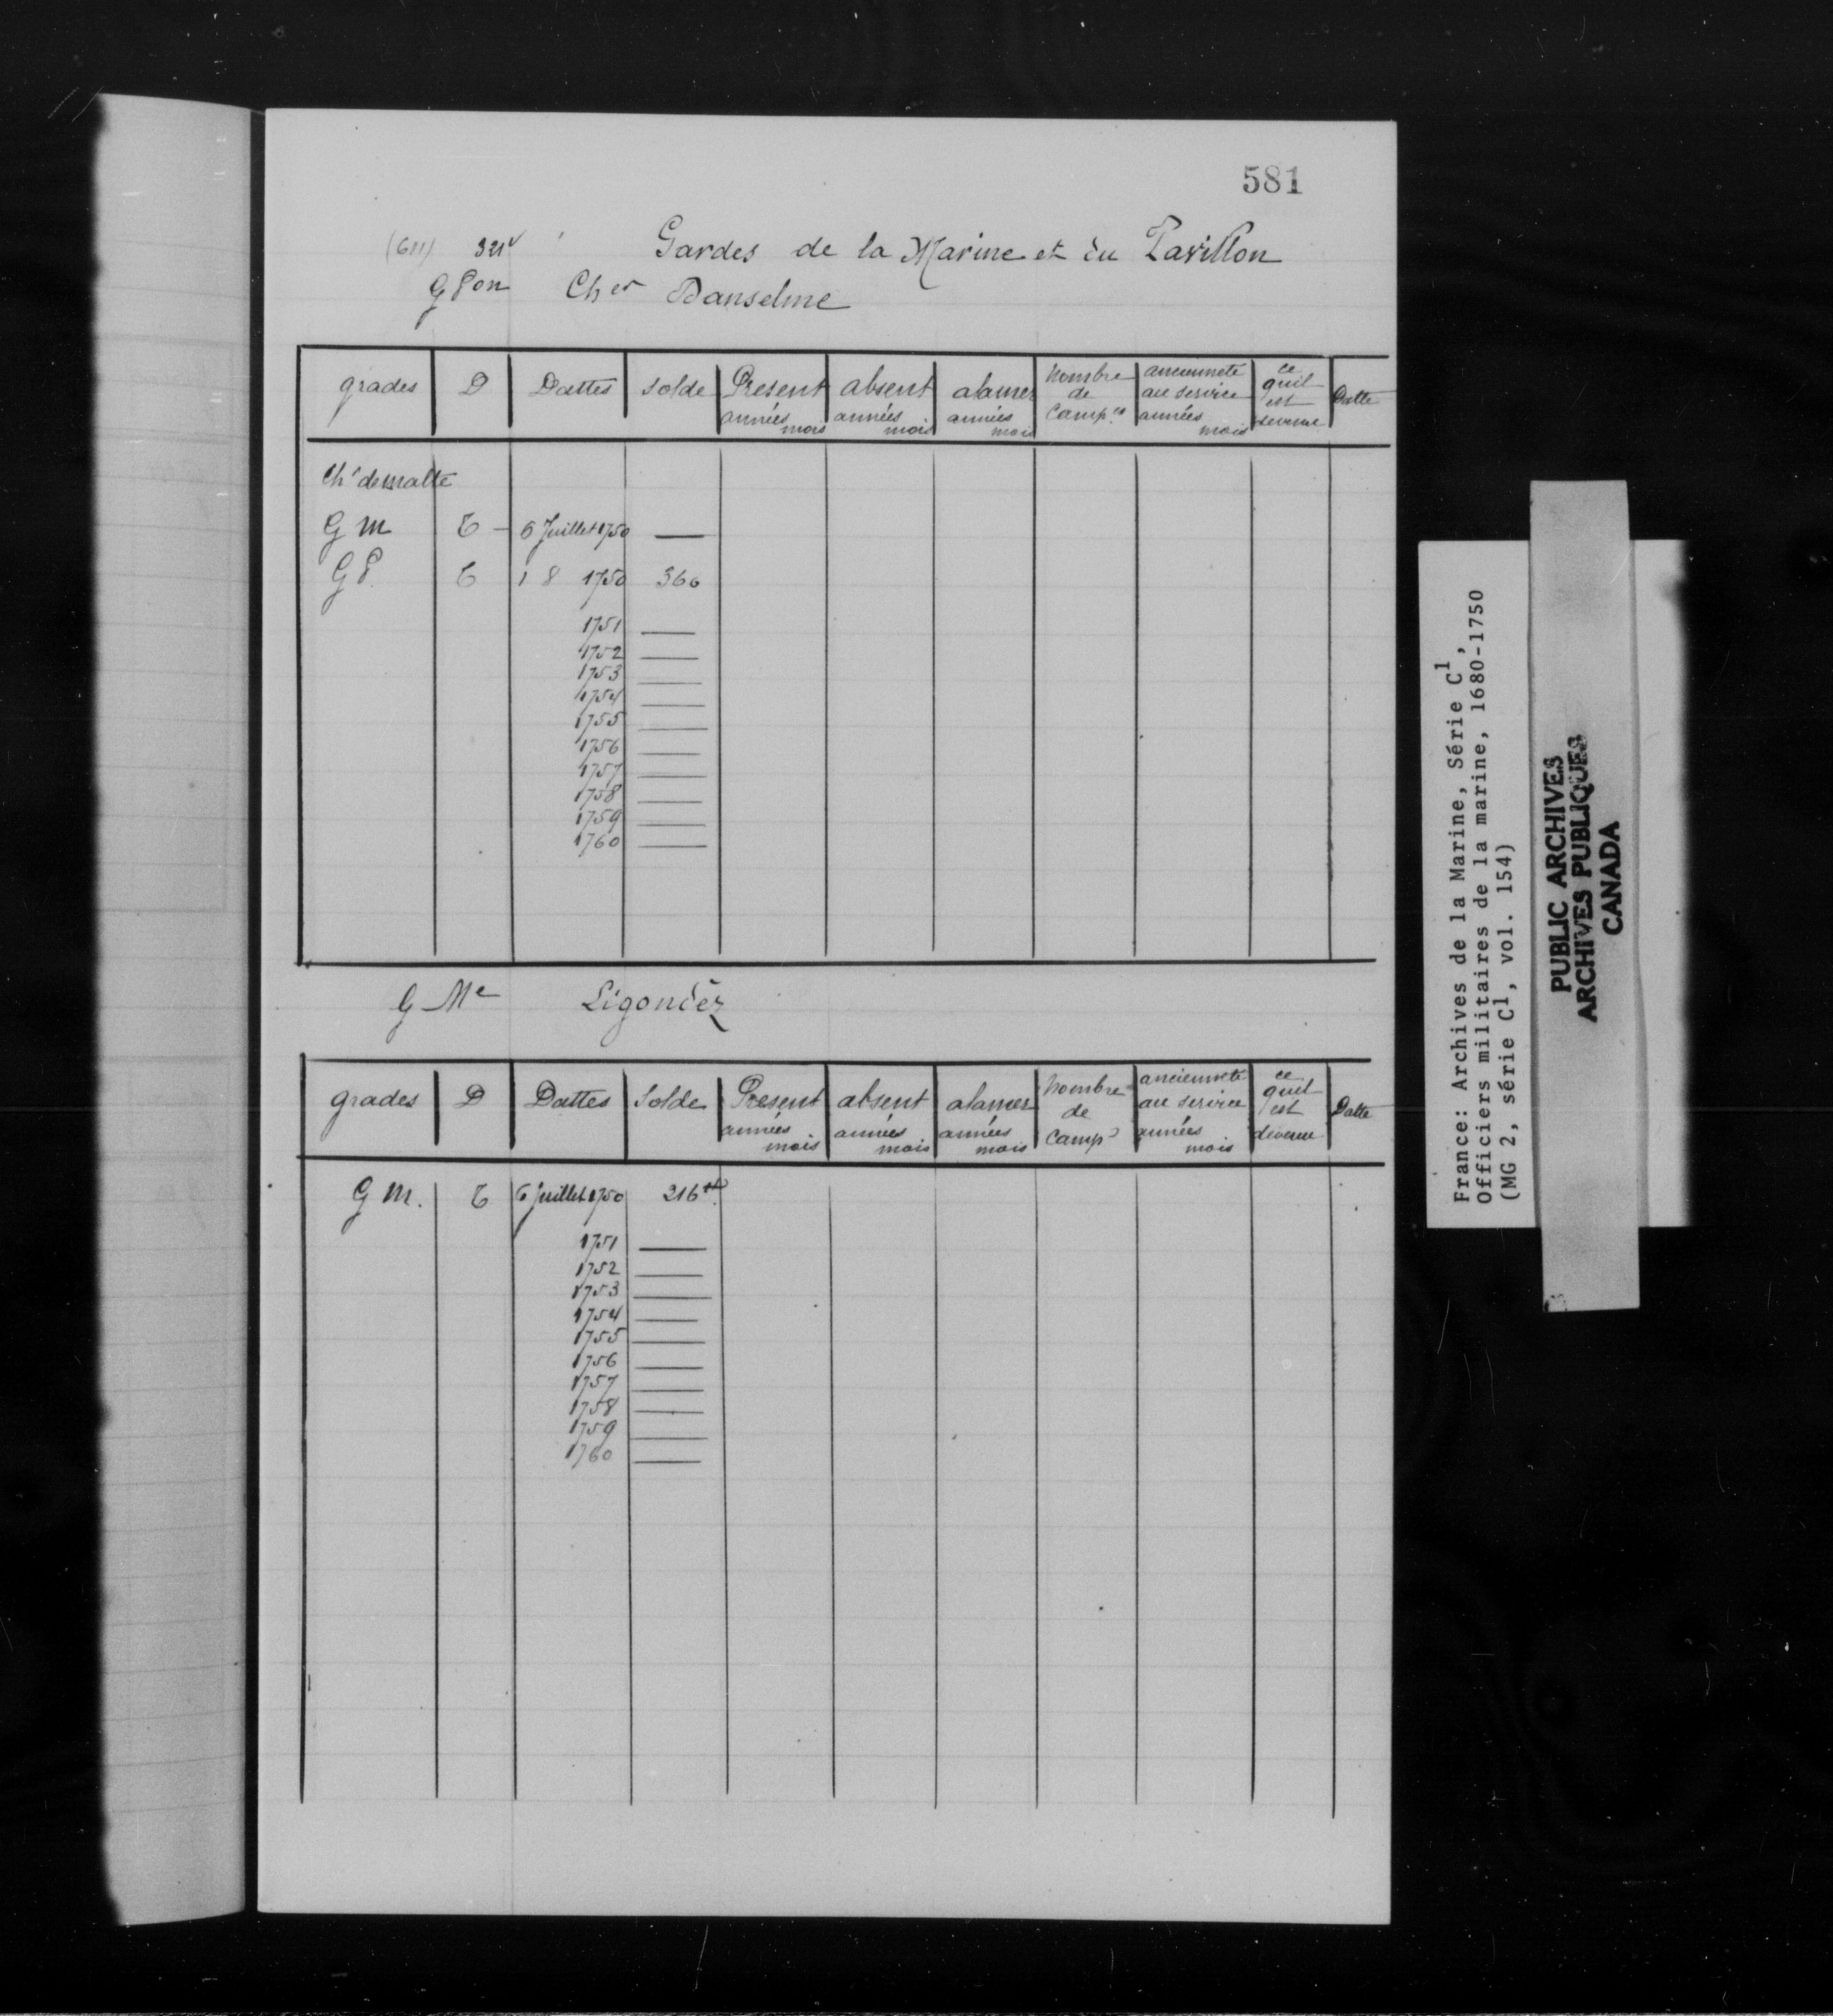 581
(611) 321v Gardes de la Marine et du Pavillon
G Pon Cher Danselme
grades D Dattes solde Present années mois absent années mois alamer années mois Nombre de Camp.es ancienneté au service années mois ce quil est devenue Datte
Chr demalte
G M T - 6 Juillet 1750 —
G P. T 1 8 1750 360
1751 —
1752 —
1753 —
1754 —
1755 —
1756 —
1757 —
1758 —
1759 —
1760 —
G Me Ligondéz
grades D Dattes Solde Présent années mois absent années mois alamer années mois Nombre de Camp ancienneté au service années mois ce quil est devenue Datte
G M. T 6 juillet 1750 216tt
1751 —
1752 —
1753 —
1754 —
1755 —
1756 —
1757 —
1758 —
1759 —
1760 —
France: Archives de la Marine, Série C1,
Officiers militaires de la marine, 1680-1750
(MG 2, série C1, vol. 154)
PUBLIC ARCHIVES
ARCHIVES PUBLIQUES
CANADA